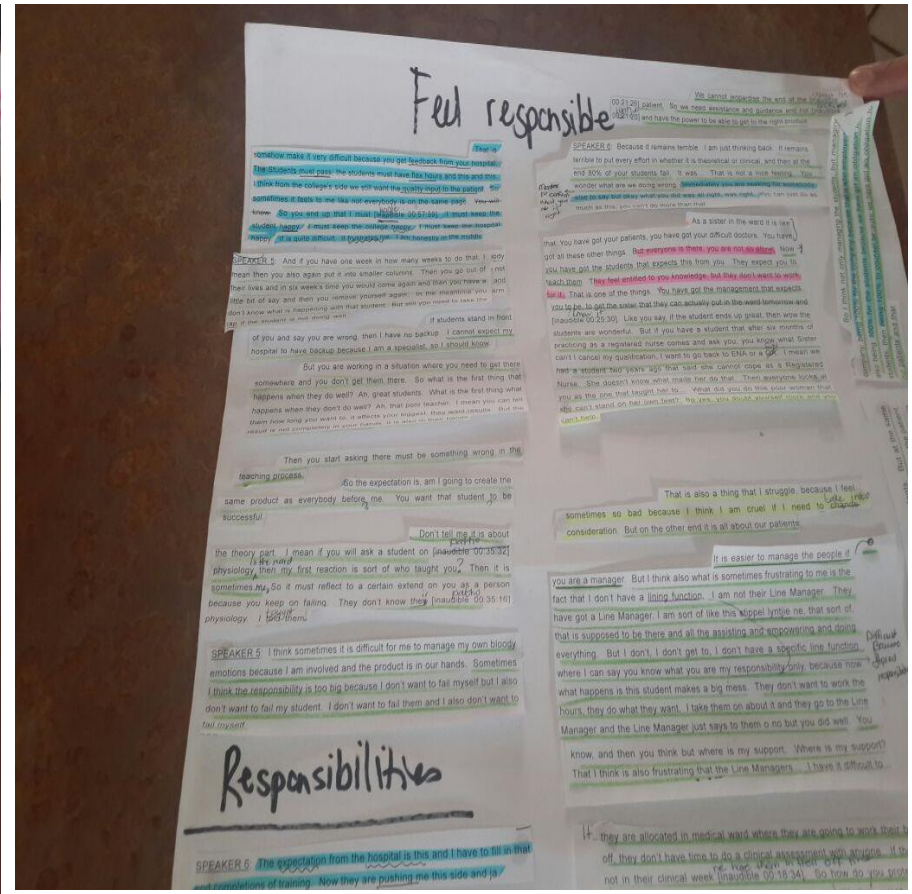 Feel responsible
That is
somehow make it very difficult because you get feedback from your hospital.
The Students must pass, the students must have flex hours and this and this
I think from the college's side we still want the quality input to the patient. So
sometimes it feels to me like not everybody is on the same page. You will
know. So you end up that I must [inaudible 00:57:59]. I must keep the
student happy. I must keep the college happy. I must keep the hospital
happy. It is quite difficult. I am honestly in the middle
SPEAKER 5: And if you have one week in how many weeks to do that. I
mean then you also again put it into smaller columns. Then you go out of
their lives and in six week's time you would come again and then you have a
little bit of say and then you remove yourself again. In the meantime you
don't know what is happening with that student. But still you need to take the
rap if the student is not doing well.
if students stand in front
of you and say you are wrong, then I have no backup. I cannot expect my
hospital to have backup because I am a specialist, so I should know.
But you are working in a situation where you need to get there
somewhere and you don't get them there. So what is the first thing that
happens when they do well? Ah, great students. What is the first thing what
happens when they don't do well? Ah, that poor teacher. I mean you can tell
them how long you want to, it affects your biggest, they want results. But the
result is not completely in your hands, it is also in their hands.
Then you start asking there must be something wrong in the
teaching process.
So the expectation is, am I going to create the
same product as everybody before me. You want that student to be
successful.
Don't tell me it is about
the theory part. I mean if you will ask a student on [inaudible 00:35:32]
physiology, then my first reaction is sort of who taught you? Then it is
sometimes me. So it must reflect to a certain extend on you as a person
because you keep on failing. They don't know they [inaudible 00:35:16]
physiology. I told them.
SPEAKER 5: I think sometimes it is difficult for me to manage my own bloody
emotions because I am involved and the product is in our hands. Sometimes
I think the responsibility is too big because I don't want to fail myself but I also
don't want to fail my student. I don't want to fail them and I also don't want to
fail myself.
Responsibilities
SPEAKER 6: The expectation from the hospital is this and I have to fill in that
and completions of training. Now they are pushing me this side and ja
We cannot jeopardise the end of the
00:21:26] patient. So we need assistance and guidance and not
and have the power to be able to get to the right product
SPEAKER 6: Because it remains terrible. I am just thinking back. It remains
terrible to put every effort in whether it is theoretical or clinical, and then at the
end 80% of your students fail. It was... That is not a nice feeling. You
wonder what are we doing wrong. Immediately you are seeking for somebody
else to say but okay what you did was all right, was right, you can just do as
much as this, you can't do more than that
As a sister in the ward it is like
that. You have got your patients, you have got your difficult doctors. You have
got all these other things. But everyone is there, you are not so alone. Now
you have got the students that expects this from you. They expect you to
teach them. They feel entitled to you knowledge, but they don't want to work
for it. That is one of the things. You have got the management that expects
you to be, to get the sister that they can actually put in the ward tomorrow and
[inaudible 00:25:30]. Like you say, if the student ends up great, then wow the
students are wonderful. But if you have a student that after six months of
practicing as a registered nurse comes and ask you, you know what Sister
can't I cancel my qualification, I want to go back to ENA or a I mean we
had a student two years ago that said she cannot cope as a Registered
Nurse. She doesn't know what made her do that. Then everyone looks at
you as the one that taught her to... What did you do this poor woman that
she can't stand on her own feet? So yes, you doubt yourself
can't help.
That is also a thing that I struggle, because I feel
take into
sometimes so bad because I think I am cruel if I need to change
consideration. But on the other end it is all about our patients.
It is easier to manage the people if
you are a manager. But I think also what is sometimes frustrating to me is the
fact that I don't have a lining function. I am not their Line Manager. They
have got a Line Manager. I am sort of like this stippel lyntjie ne, that sort of,
that is supposed to be there and all the assisting and empowering and doing
everything. But I don't, I don't get to, I don't have a specific line function
where I can say you know what you are my responsibility only because now
what happens is this student makes a big mess. They don't want to work the
hours, they do what they want. I take them on about it and they go to the Line
Manager and the Line Manager just says to them o no but you did well. You
know, and then you think but where is my support. Where is my support?
That I think is also frustrating that the Line Managers... I have it difficult to...
they are allocated in medical ward where they are going to work their
off, they don't have time to do a clinical assessment with anyone. If
not in their clinical week [inaudible 00:18:34]. So how do you